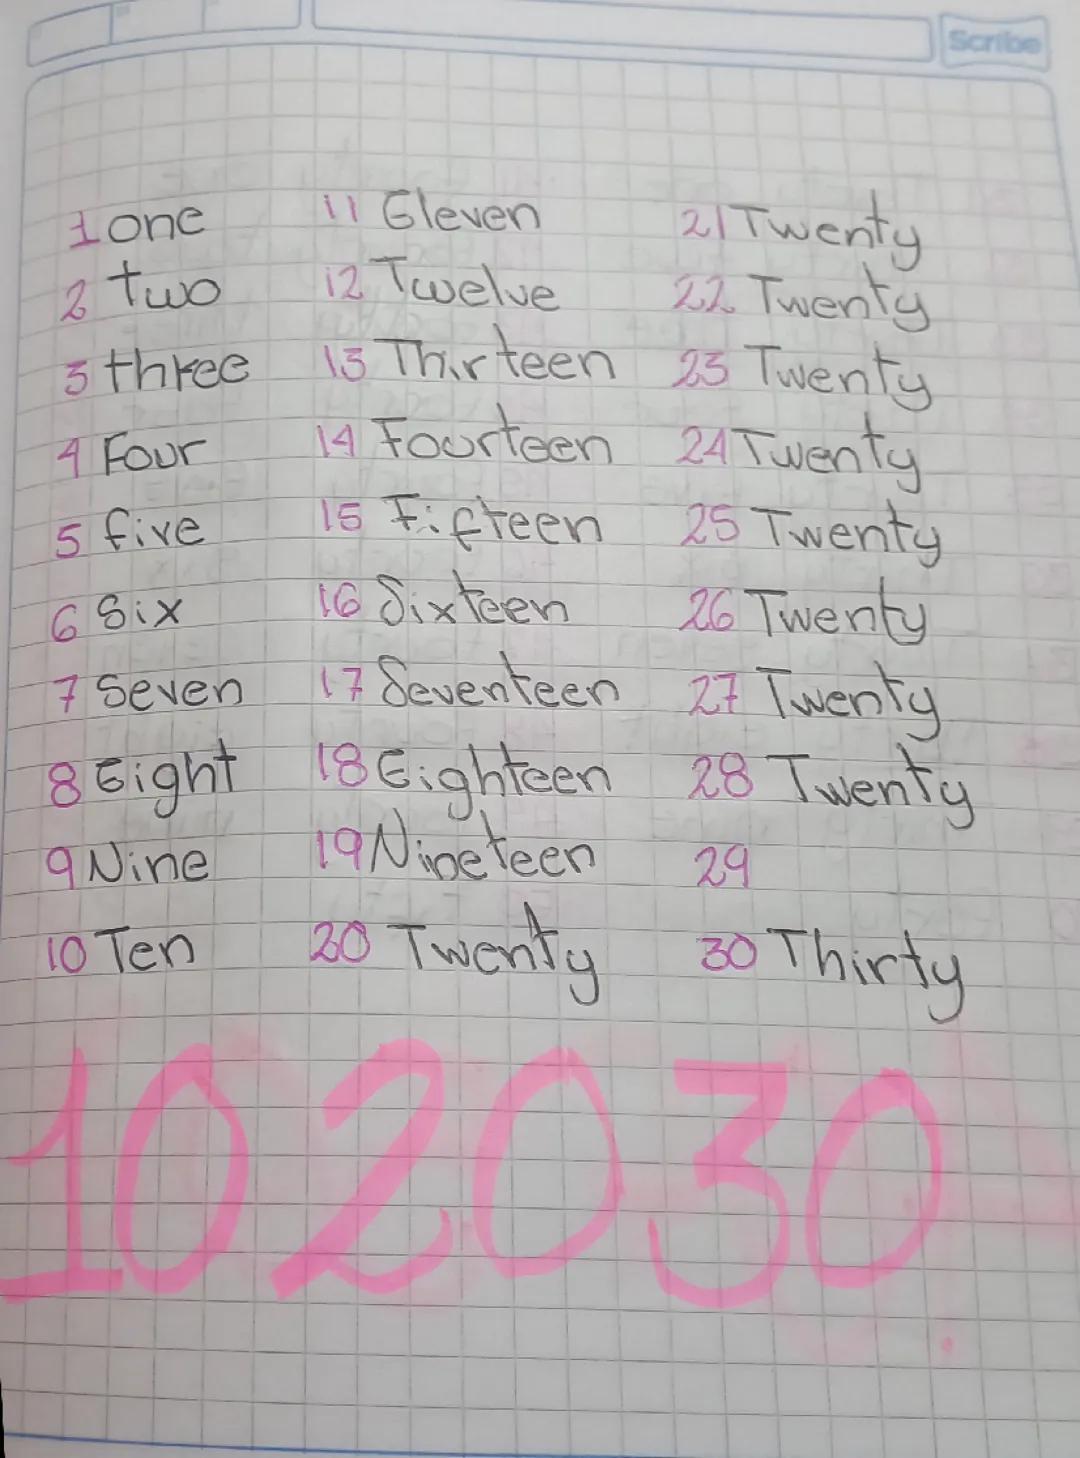 Scribe
1 one
2 two
3 three
4 Four
5 five
6 Six
7 Seven
8 Eight
9 Nine
10 Ten
11 Eleven
12 Twelve
13 Thirteen
14 Fourteen
15 Fifteen
16 Sixteen
17 Seventeen
18 Eighteen
19 Nineteen
20 Twenty
21 Twenty
22 Twenty
23 Twenty
24 Twenty
25 Twenty
26 Twenty
27 Twenty
28 Twenty
29
30 Thirty
10 20 30